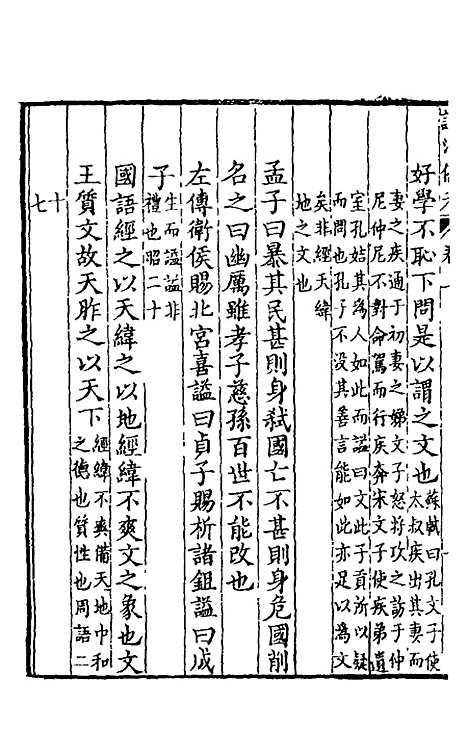 好學不恥下問是以謂之文也蘇軾曰孔文子使
太叔疾出其妻而
妻之疾通于初妻之娣文子怒将攻之訪于仲
尼仲尼不對命駕而行疾奔宋文子使疾弟遺
室孔姞其為人如此而諡曰文此子貢所以疑
而問也孔子不没其善言能如此亦足以為文
矣非經天緯
地之文也
孟子曰暴其民甚則身弑國亡不甚則身危國削
名之曰幽厲雖孝子慈孫百世不能改也
左傳衛侯賜北宮喜諡曰貞子賜析諸鉏諡曰成
子生而諡諡非
禮也昭二十
國語經之以天緯之以地經緯不爽文之象也文
王質文故天胙之以天下經緯不爽備天地中和
之德也質性也周語二
十
七